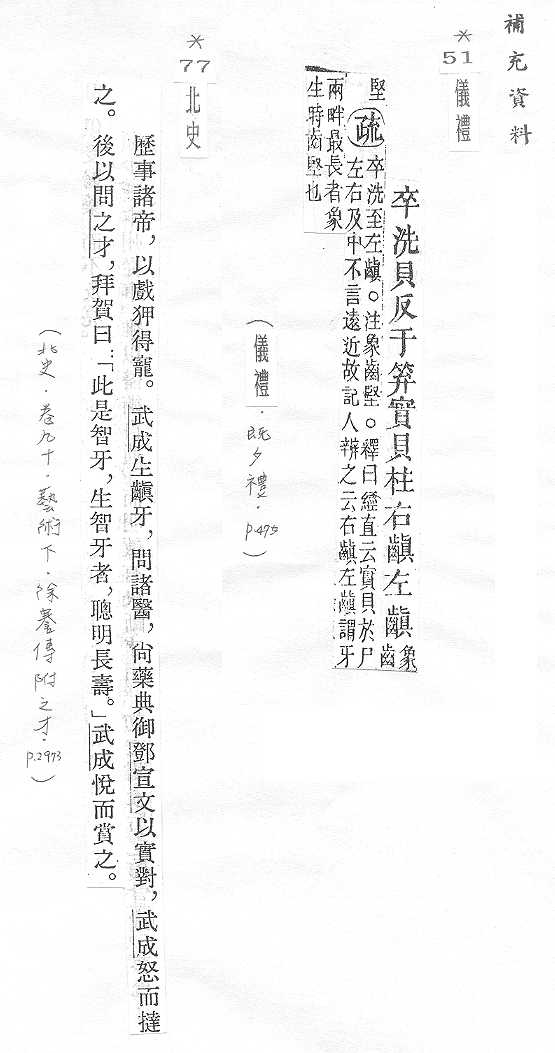 補充資料
*51
儀禮
卒洗貝反于笲實貝柱右齻左齻象齒
堅疏卒洗至左齻。注象齒堅。釋曰經直云實貝於尸
左右及中不言遠近故記人辨之云右齻左齻謂牙
兩畔最長者象
生時齒堅也
(儀禮.既夕禮.p.475)
*77
北史
歷事諸帝,以戲狎得寵。武成生齻牙,問諸醫,尚藥典御鄧宣文以實對,武成怒而撻
之。後以問之才,拜賀曰:「此是智牙,生智牙者,聰明長壽。」武成悅而賞之。
(北史.卷九十.藝術下.徐謇傳附之才.p.2973)